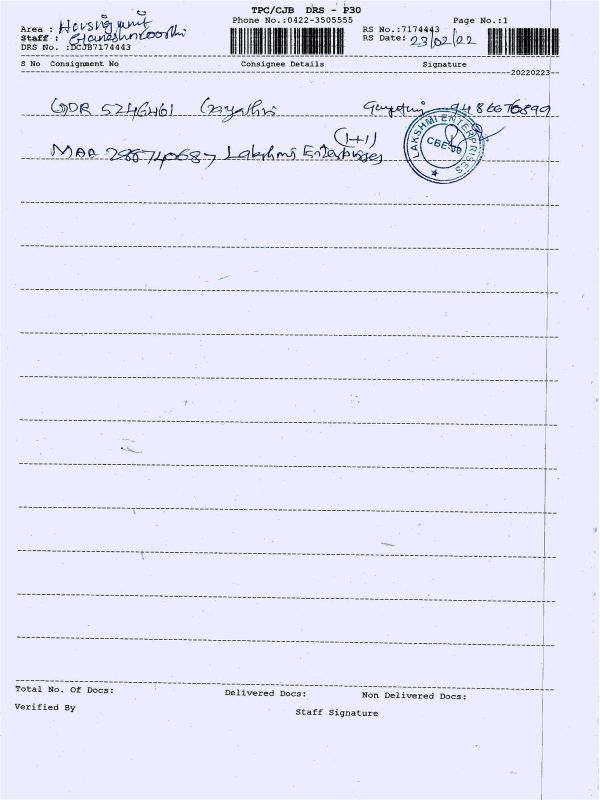 TPC/CJB DRS - P30
Phone No.:0422-3505555 Page No.:1
Area : Housing unit
Staff : Ganeshmoorthi
RS No.:7174443
RS Date: 23/02/22
DRS No. :DCJB7174443
S No Consignment No Consignee Details Signature
20220223
5246461 Gayathri
(1+1)
MAA 288740687 Lakshmi Enterprises
LAKSHMI ENTERPRISES
Total No. Of Docs: Delivered Docs: Non Delivered Docs:
Verified By Staff Signature